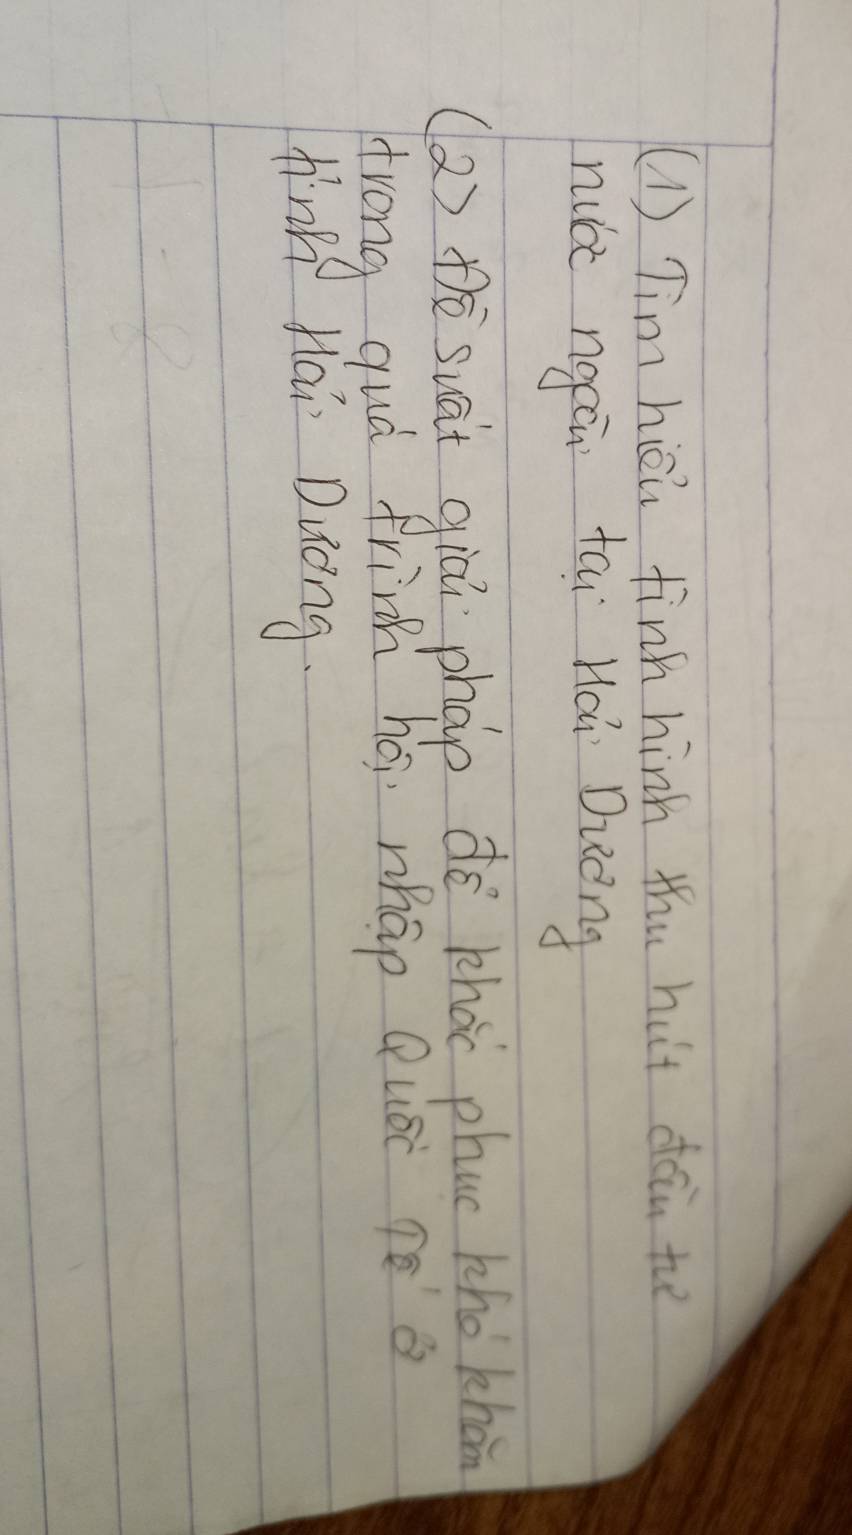 (1) Tìm hiểu tình hình thu hút đầu tư
nước ngoài tại Hải Dương
(2) Đề suất giải pháp để khắc phục khó khăn
trong quá trình hội nhập Quốc Tế ở
tỉnh Hải Dương.